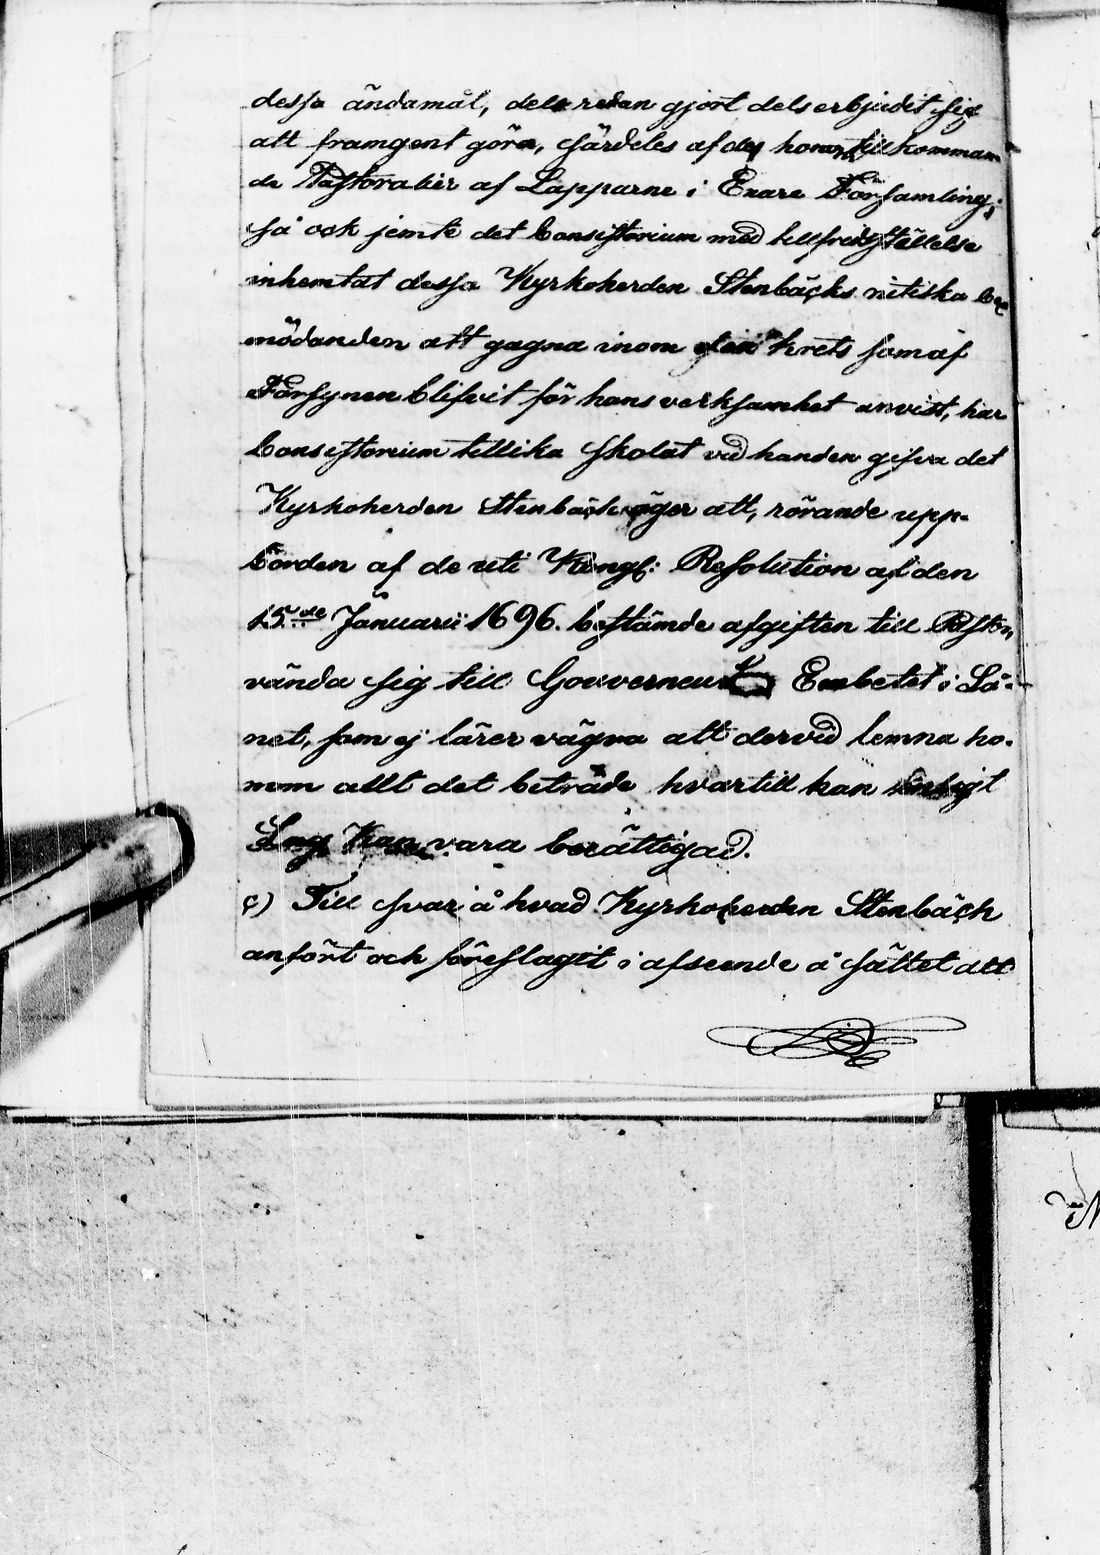 dessa ändamål, dels redan gjort dels erbjudit sig
att framgent göra, särdeles af de honom tillkomman
de Pastoralier af Lapparne i Enare Församling;
så ock jemte det Consistorium med tillfredsställelse
inhemtat dessa Kyrkoherden Stenbäcks nitiska be
mödanden att gagna inom den krets som af
Försynen blifvit för hans verksamhet anvist, har
Consistorium tillika skolat vid handen gifva det
Kyrkoherden Stenbäck äger att, rörande upp-
börden af de uti Kongl: Resolution af den
15de Januarii 1696. bestämde afgiften till Pastor,
vända sig till Gouverneurs Embetet i Lä-
net, som ej lärer vägra att dervid lemna ho-
nom allt det beträde hvartill han enligt
Lag kan vara berättigad.
c) Till svar å hvad Kyrkoherden Stenbäck
anfört och föreslagit i afseende å sättet att